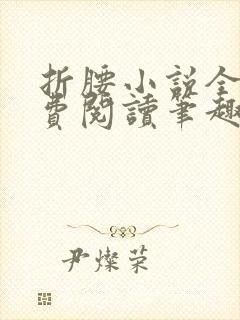 折腰小説全
費閱讀筆趣
尹燦荣